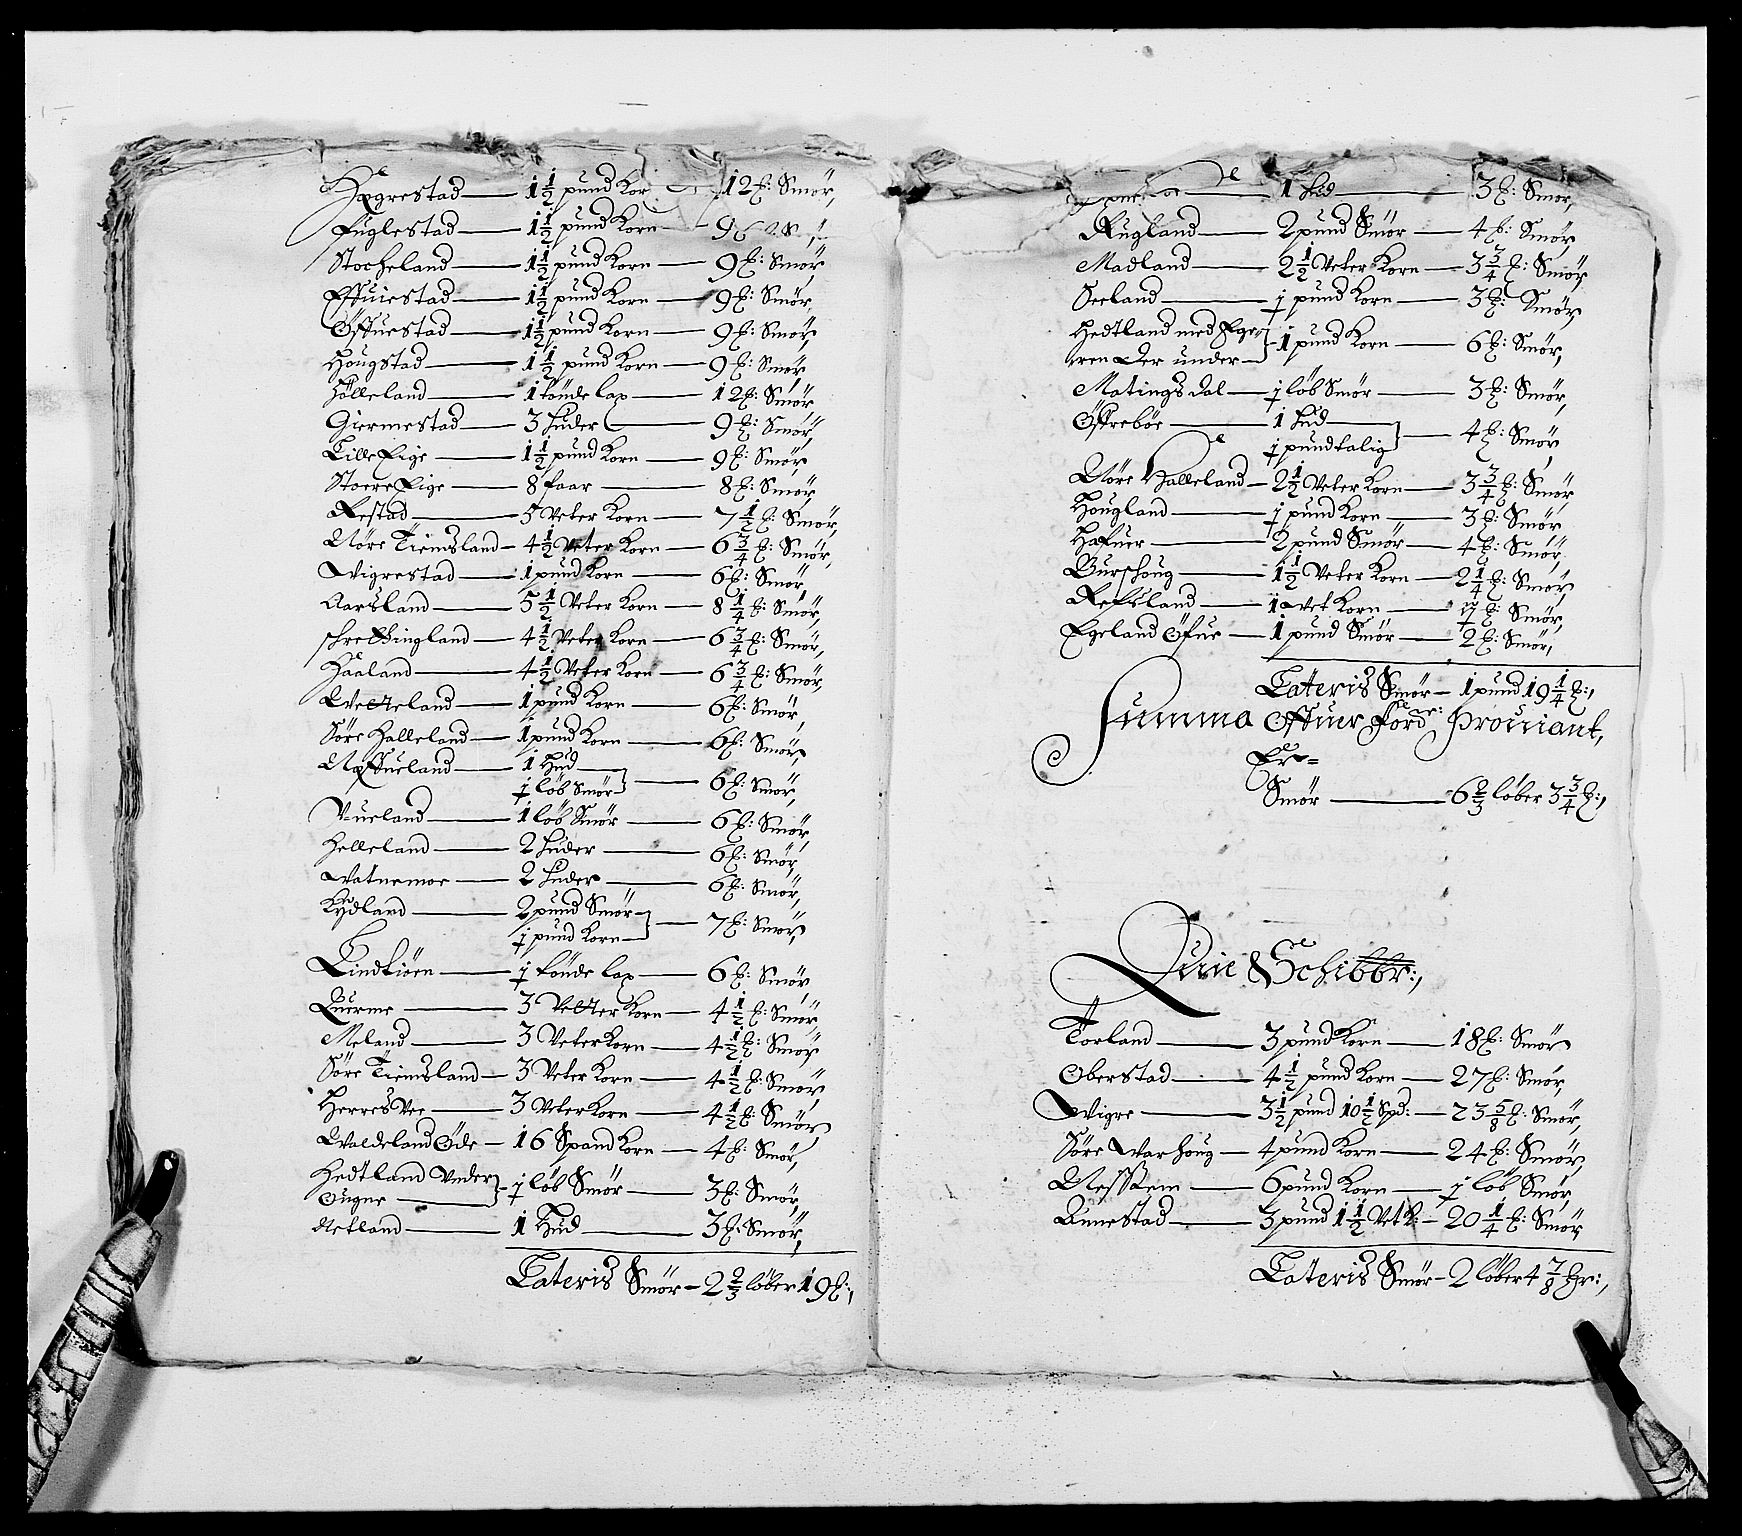 Hægrestad — 1½ pund Kor 12 ℔: Smør,
Fuglestad — 1½ pund Korn — 9
Stocheland — 1½ pund Korn — 9 ℔: Smør
Effuiestad — 1½ pund Korn — 9 ℔: Smør,
Öffuestad — 1½ pund Korn — 9 ℔: Smør,
Hougstad — 1½ pund Korn — 9 ℔: Smør
Hölleland — 1 tönde lax — 12 ℔: Smør
Giermestad — 3 huder — 9 ℔: Smør,
Lille Eige — 1½ pund Korn — 9 ℔: Smør
Stoere Eige — 8 faar — 8 ℔: Smør
Restad — 5 Veter Korn — 7½ ℔: Smør,
Nöre Tiemsland — 4½ Veter Korn — 6¾ ℔: Smør,
Wigrestad — 1 pund Korn — 6 ℔: Smør,
Aarsland — 5½ Veter Korn — 8¼ ℔: Smør,
schretthingland — 4½ Veter Korn — 6¾ ℔: Smør,
Haaland — 4½ Veter Korn — 6¾ ℔: Smør,
Wetteland — 1 pund Korn — 6 ℔: Smør,
Söre Halleland — 1 pund Korn — 6 ℔: Smør,
Næffueland — 1 Hud
½ löb Smör — 6 ℔: Smør,
Vueland — 1 löb Smör — 6 ℔: Smør
Helleland — 2 huder — 6 ℔: Smør,
Watnemoe — 2 huder — 6 ℔: Smør,
Lydland — 2 pund Smör
½ pund Korn — 7 ℔: Smør,
Lindtiörn — ½ tönde lax — 6 ℔: Smør
Querme — 3 Vetter Korn — 4½ ℔: Smør
Meland — 3 Veter Korn — 4½ ℔: Smør
Söre Tiemsland — 3 Veter Korn — 4½ ℔: Smør,
Herres Vee — 3 Veter Korn — 4½ ℔: Smør,
Waldeland Öde — 16 Spand Korn — 4 ℔: Smør,
Hedtland Under
Ougne — ½ löb Smör — 3 ℔: Smør,
Netland — 1 Hud — 3 ℔: Smør,
Lateris Smör — 2⅔ löber 19 ℔:,
1 hud — 3 ℔: Smør,
Rugland — 2 pund Smör — 4 ℔: Smør,
Madland — 2½ Veter Korn — 3¾ ℔: Smør,
Seeland — ½ pund Korn — 3 ℔: Smør,
Hedtland med Ege
ren Der under — 1 pund Korn — 6 ℔: Smør,
Matings dal — ½ löb Smör — 3 ℔: Smør,
Öffreböe — 1 hud
½ pund talig — 4 ℔: Smør,
Nöre Halleland — 2½ Veter Korn — 3¾ ℔: Smør
Hougland — ½ pund Korn — 3 ℔: Smør
Hafuer — 2 pund Smör — 4 ℔: Smør,
Gurshoug — 1½ Veter Korn — 2¼ ℔: Smør,
Refsland — 1 vet Korn — 1½ ℔: Smør,
Egeland Öfue — 1 pund Smör — 2 ℔: Smør,
Lateris Smör — 1 pund 19¼ ℔:,
Summa Offuer Fordne: Prouiant,
Er =
Smör — 6⅔ löber 3¾ ℔:,
Quie Schibbr:,
Torland — 3 pund Korn — 18 ℔: Smør
Oberstad — 4½ pund Korn — 27 ℔: Smør,
Wigre — 3½ pund 10½ Spd: — 23⅝ ℔: Smør,
Söre Warhoug — 4 pund Korn — 24 ℔: Smør,
Nessem — 6 pund Korn — ½ löb Smör,
Annestad — 3 pund 1½ Vet K: — 20¼ ℔: Smør
Lateris Smör — 2 löber 4⅞ ℔r:,